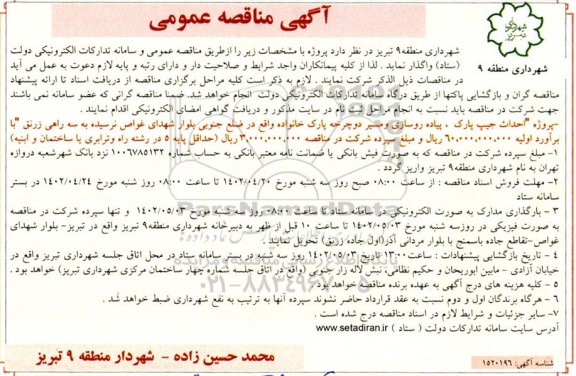 آگهی مناقصه عمومی
شهرداری
تبریز
شهرداری منطقه ۹
شهرداری منطقه۹ تبریز در نظر دارد پروژه با مشخصات زیر را ازطریق مناقصه عمومی و سامانه تدارکات الکترونیکی دولت
(ستاد) واگذار نماید . لذا از کلیه پیمانکاران واجد شرایط و صلاحیت دار و دارای رتبه و پایه لازم دعوت به عمل می آید
در مناقصات ذیل الذکر شرکت نمایند . لازم به ذکر است کلیه مراحل برگزاری مناقصه از دریافت اسناد تا ارائه پیشنهاد
مناقصه گران و بازگشایی پاکتها از طریق درگاه سامانه تدارکات الکترونیکی دولت انجام خواهد شد. ضمنا مناقصه گرانی که عضو سامانه نمی باشند
جهت شرکت در مناقصه باید نسبت به انجام مراحل ثبت نام در سایت مذکور و دریافت گواهی امضای الکترونیکی اقدام نمایند .
-پروژه "احداث جیب پارک ، پیاده روسازی ومسیر دوچرخه پارک خانواده واقع در ضلع جنوبی بلوار شهدای غواص نرسیده به سه راهی زرنق "با
برآورد اولیه ۶۰,۰۰۰,۰۰۰,۰۰۰ ریال و مبلغ سپرده شرکت در مناقصه ۳,۰۰۰,۰۰۰,۰۰۰ ریال (حداقل پایه ۵ در رشته راه وترابری یا ساختمان و ابنیه)
۱– مبلغ سپرده شرکت در مناقصه که به صورت فیش بانکی یا ضمانت نامه معتبر بانکی به حساب شماره ۱۰۰۶۷۸۵۱۳۲ نزد بانک شهرشعبه دروازه
تهران به نام شهرداری منطقه۹ تبریز واریز گردد .
۲– مهلت فروش اسناد مناقصه : از ساعت ۰۸:۰۰ صبح روز سه شنبه مورخ ۱۴۰۲/۰۴/۲۰ تا ساعت ۰۸:۰۰ روز شنبه مورخ ۱۴۰۲/۰۴/۲۴ در بستر
سامانه ستاد
۳ – بارگذاری مدارک به صورت الکترونیکی در سامانه ستاد تا ساعت ۰۸:۰۰ روز سه شنبه مورخ ۱۴۰۲/۰۵/۰۳ و تنها سپرده شرکت در مناقصه
به صورت فیزیکی در روزسه شنبه مورخ ۱۴۰۲/۰۵/۰۳ تا ساعت ۱۰ قبل از ظهر به دبیرخانه شهرداری منطقه۹ تبریز واقع در تبریز- بلوار شهدای
غواص-تقاطع جاده باسمنج با بلوار مردانی آذر(اول جاده زرنق) تحویل نمایند .
۴ – تاریخ بازگشایی پیشنهادات : ساعت۱۳:۰۰ تاریخ ۱۴۰۲/۰۵/۰۳ روز سه شنبه در بستر سامانه ستاد در محل اتاق جلسه شهرداری تبریز واقع در
خیابان آزادی – مابین ابوریحان و حکیم نظامی، نبش لاله زار جنوبی (واقع در اتاق جلسه شماره چهار ساختمان مرکزی شهرداری تبریز) خواهد بود .
۵ – کلیه هزینه های درج آگهی به عهده برنده مناقصه خواهد بود .
۶ – هرگاه برندگان اول و دوم نسبت به عقد قرارداد حاضر نشوند سپرده آنها به ترتیب به نفع شهرداری ضبط خواهد شد .
۷– سایر جزئیات و شرایط لازم در اسناد مناقصه درج شده است .
آدرس سایت سامانه تدارکات دولت ( ستاد ) www.setadiran.ir
محمد حسین زاده – شهردار منطقه ۹ تبریز
شناسه آگهی: ۱۵۲۰۱۹۶
ParsNamadData
۰۲۱-۸۸۳۴۹۶۷۰-۵